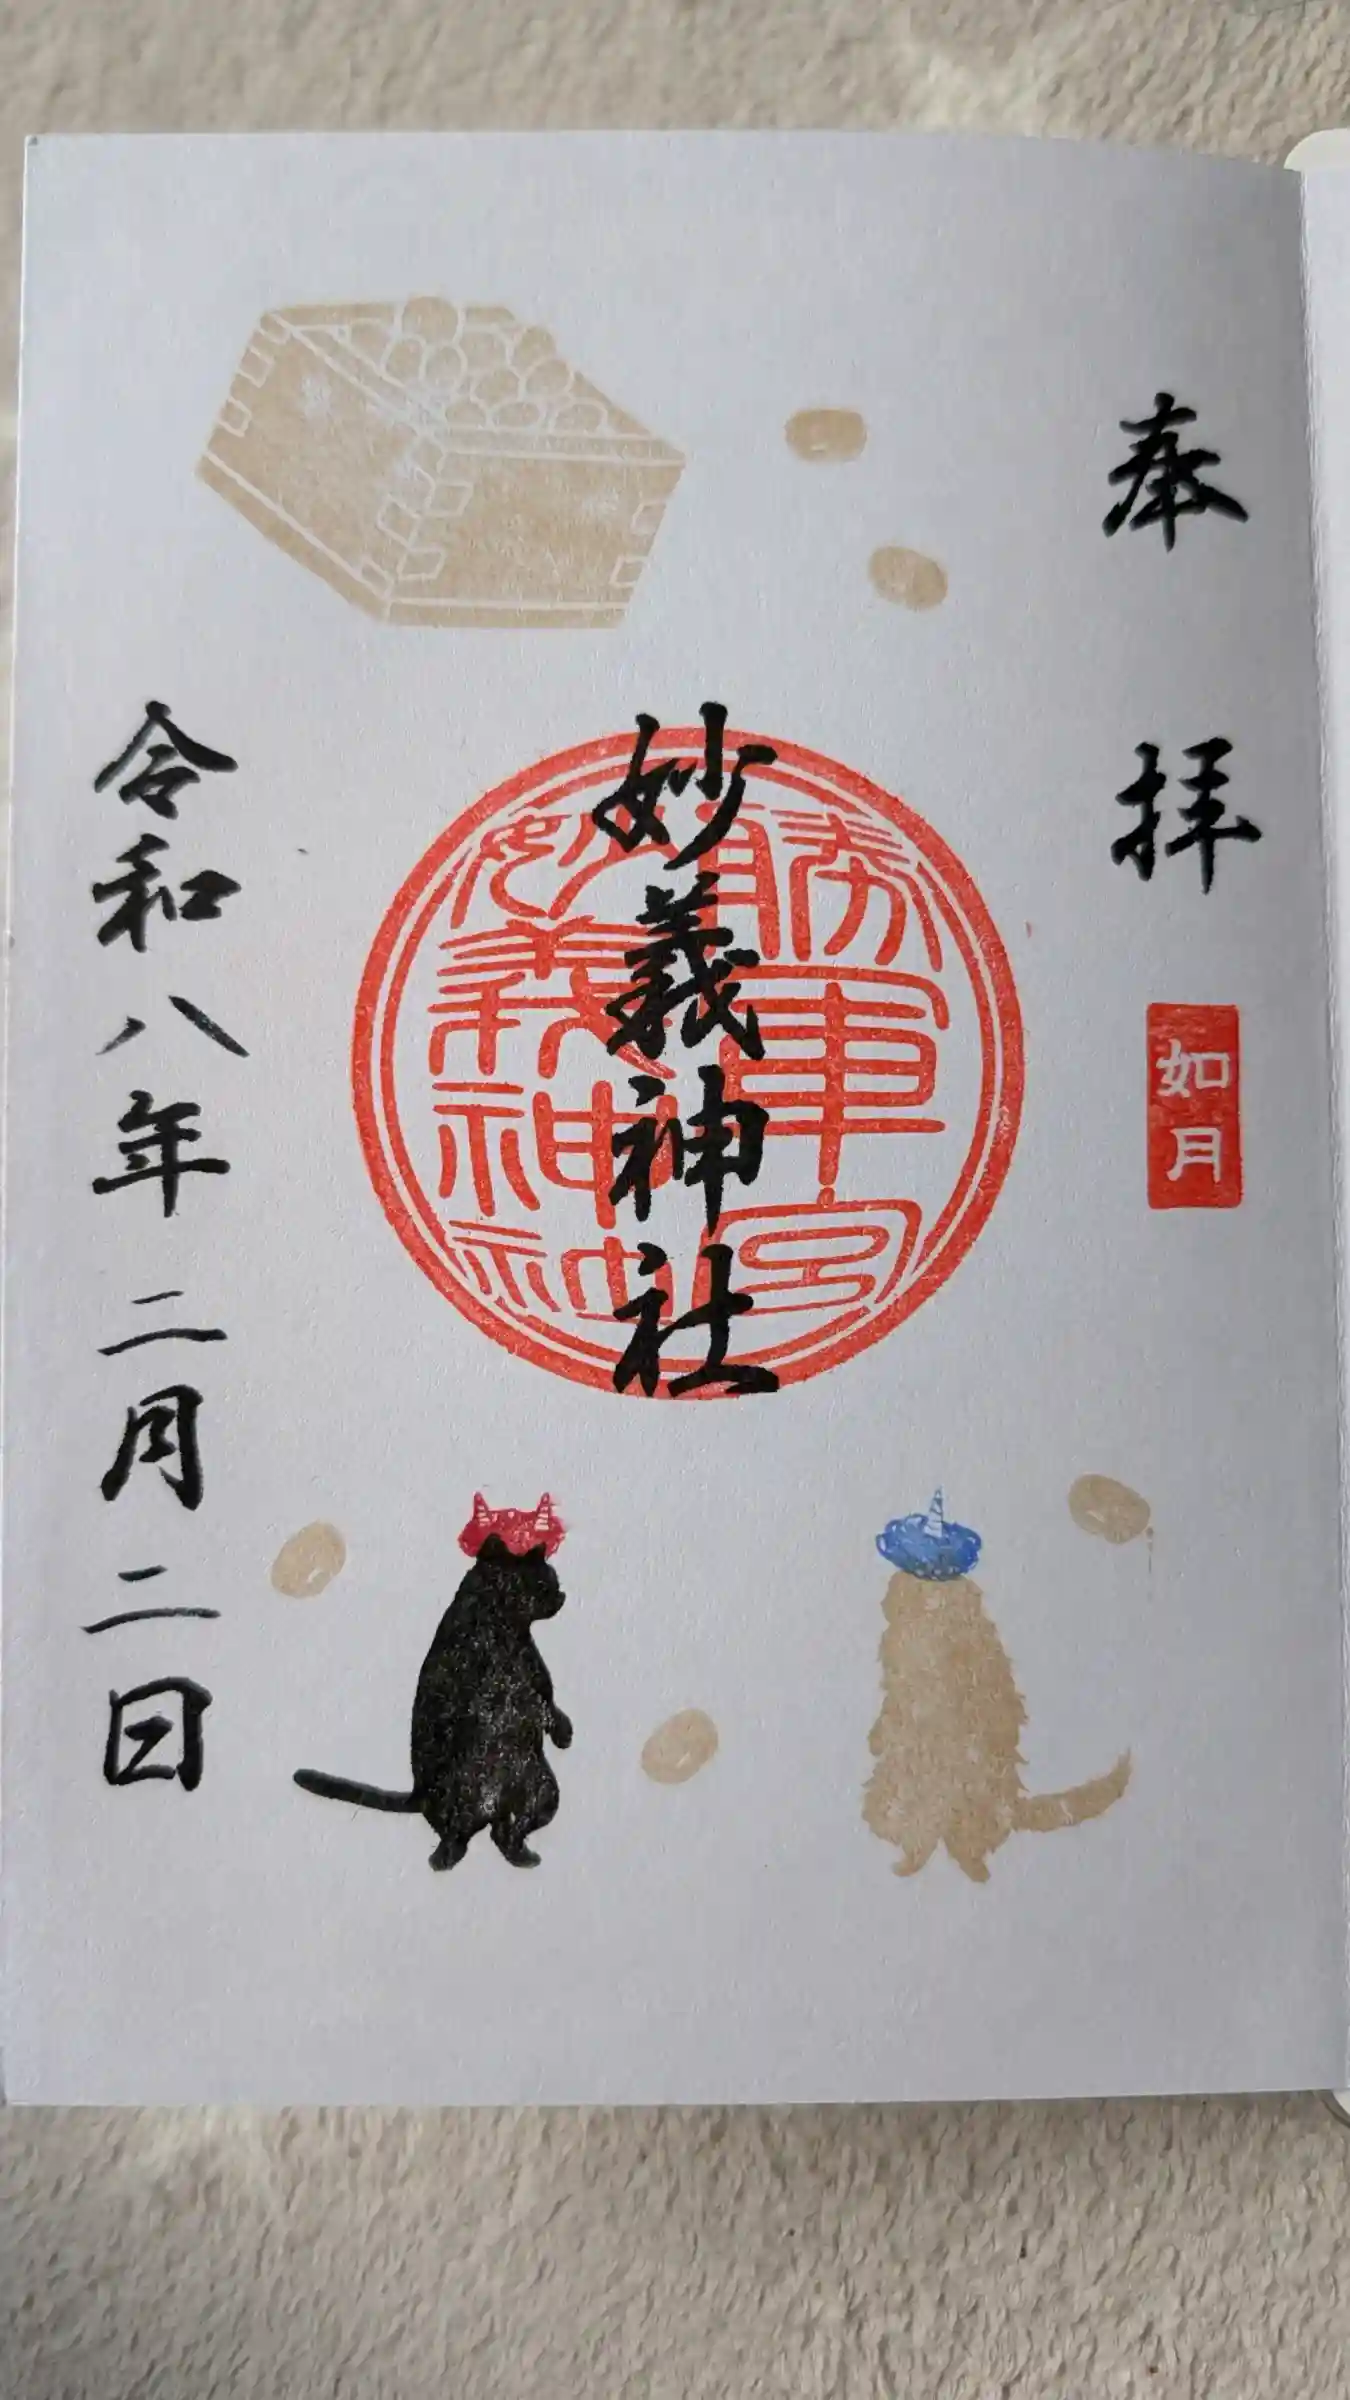 奉拝
如月
勝軍宮
妙義神社
妙義神社
令和八年二月二日